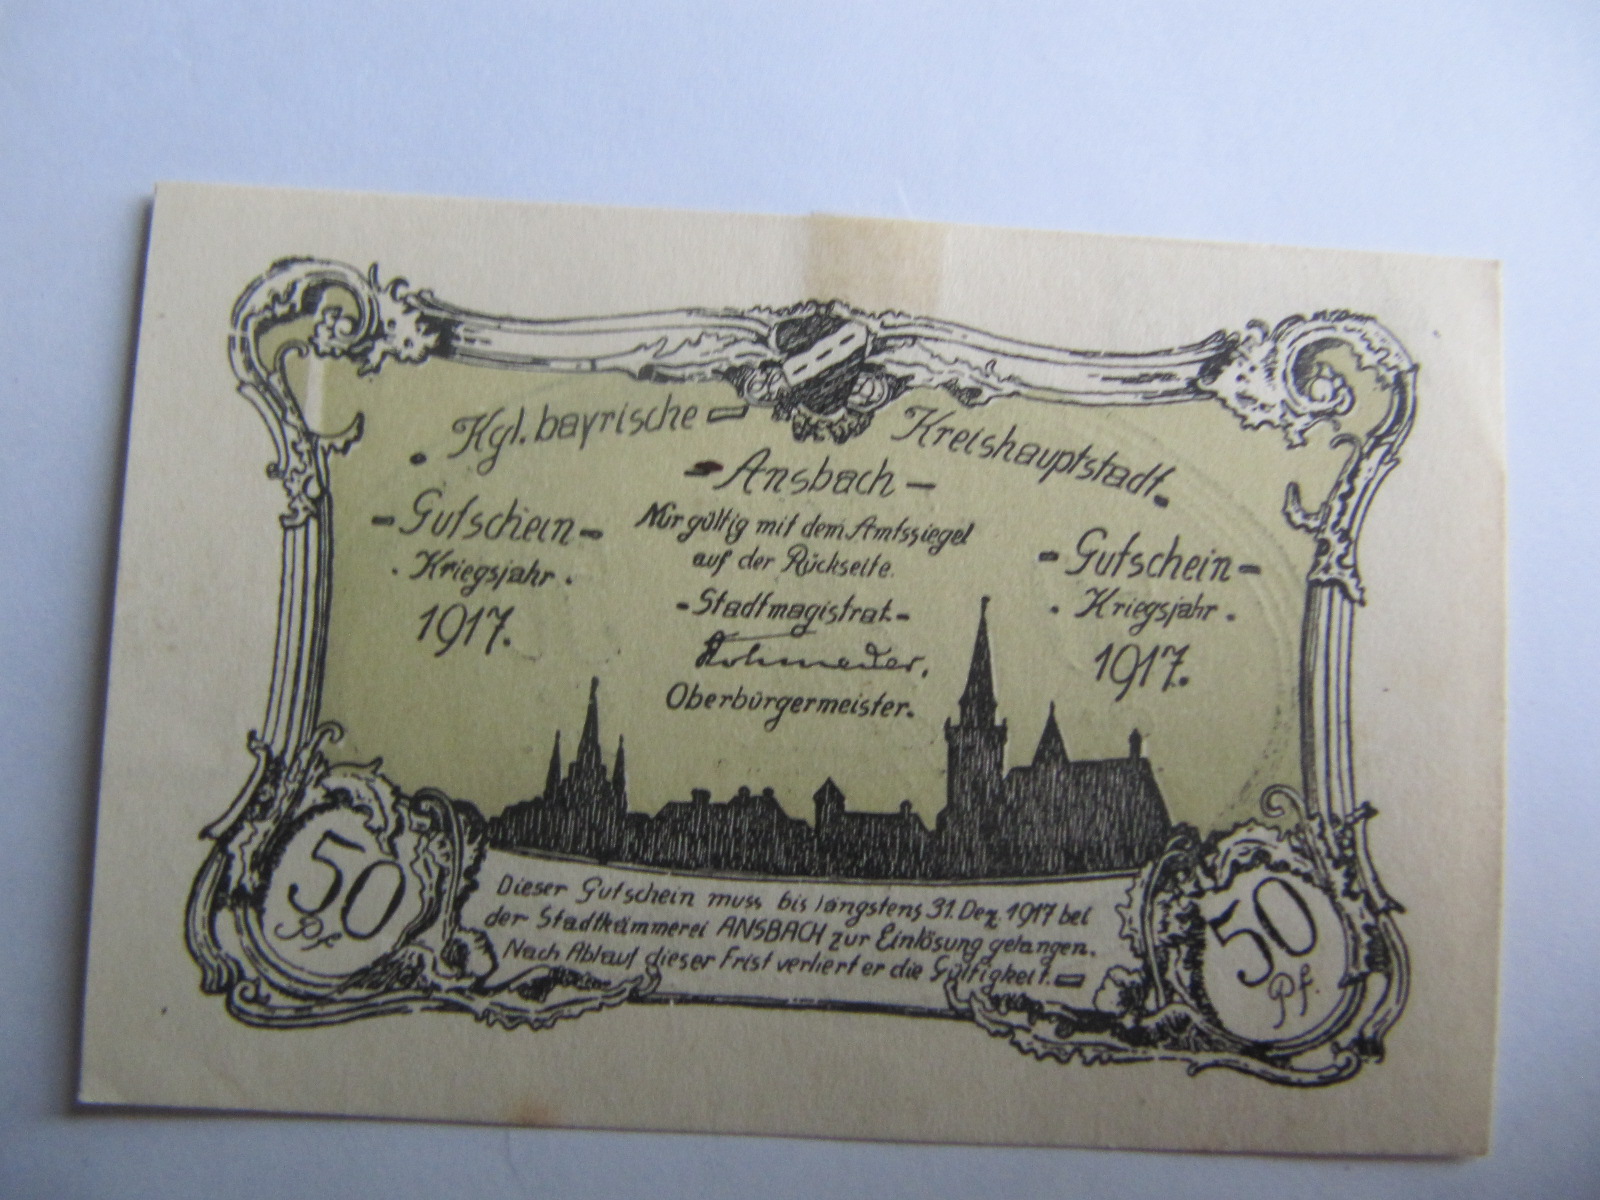 Kgl. bayrische Kreishauptstadt
- Ansbach -
- Gutschein -
. Kriegsjahr .
1917.
Nur gültig mit dem Amtssiegel
auf der Rückseite.
- Stadtmagistrat -
Rohmeder,
Oberbürgermeister.
- Gutschein -
. Kriegsjahr .
1917.
50
Pf.
Dieser Gutschein muss bis längstens 31. Dez. 1917 bei
der Stadtkämmerei ANSBACH zur Einlösung gelangen.
Nach Ablauf dieser Frist verliert er die Gültigkeit.
50
Pf.